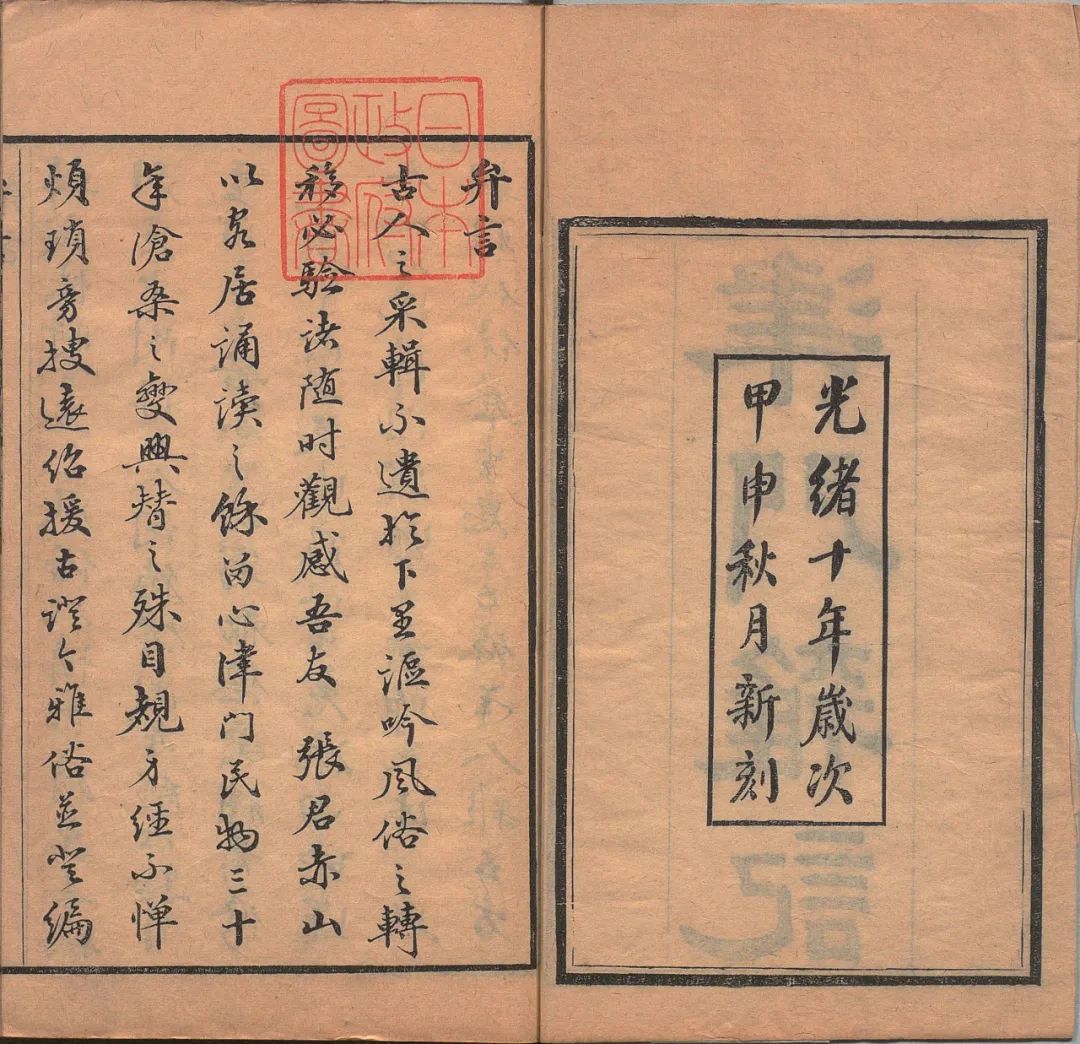 光緒十年歲次
甲申秋月新刻
日本
政府
圖書
弁言
古人之采輯不遺於下里謳吟風俗之轉
移必驗諸随时觀感吾友張君赤山
以客居誦读之餘留心津门民物三十
年滄桑之變興替之殊目覩身經不憚
煩瑣旁搜遠紹援古證今雅俗並登編
弁言